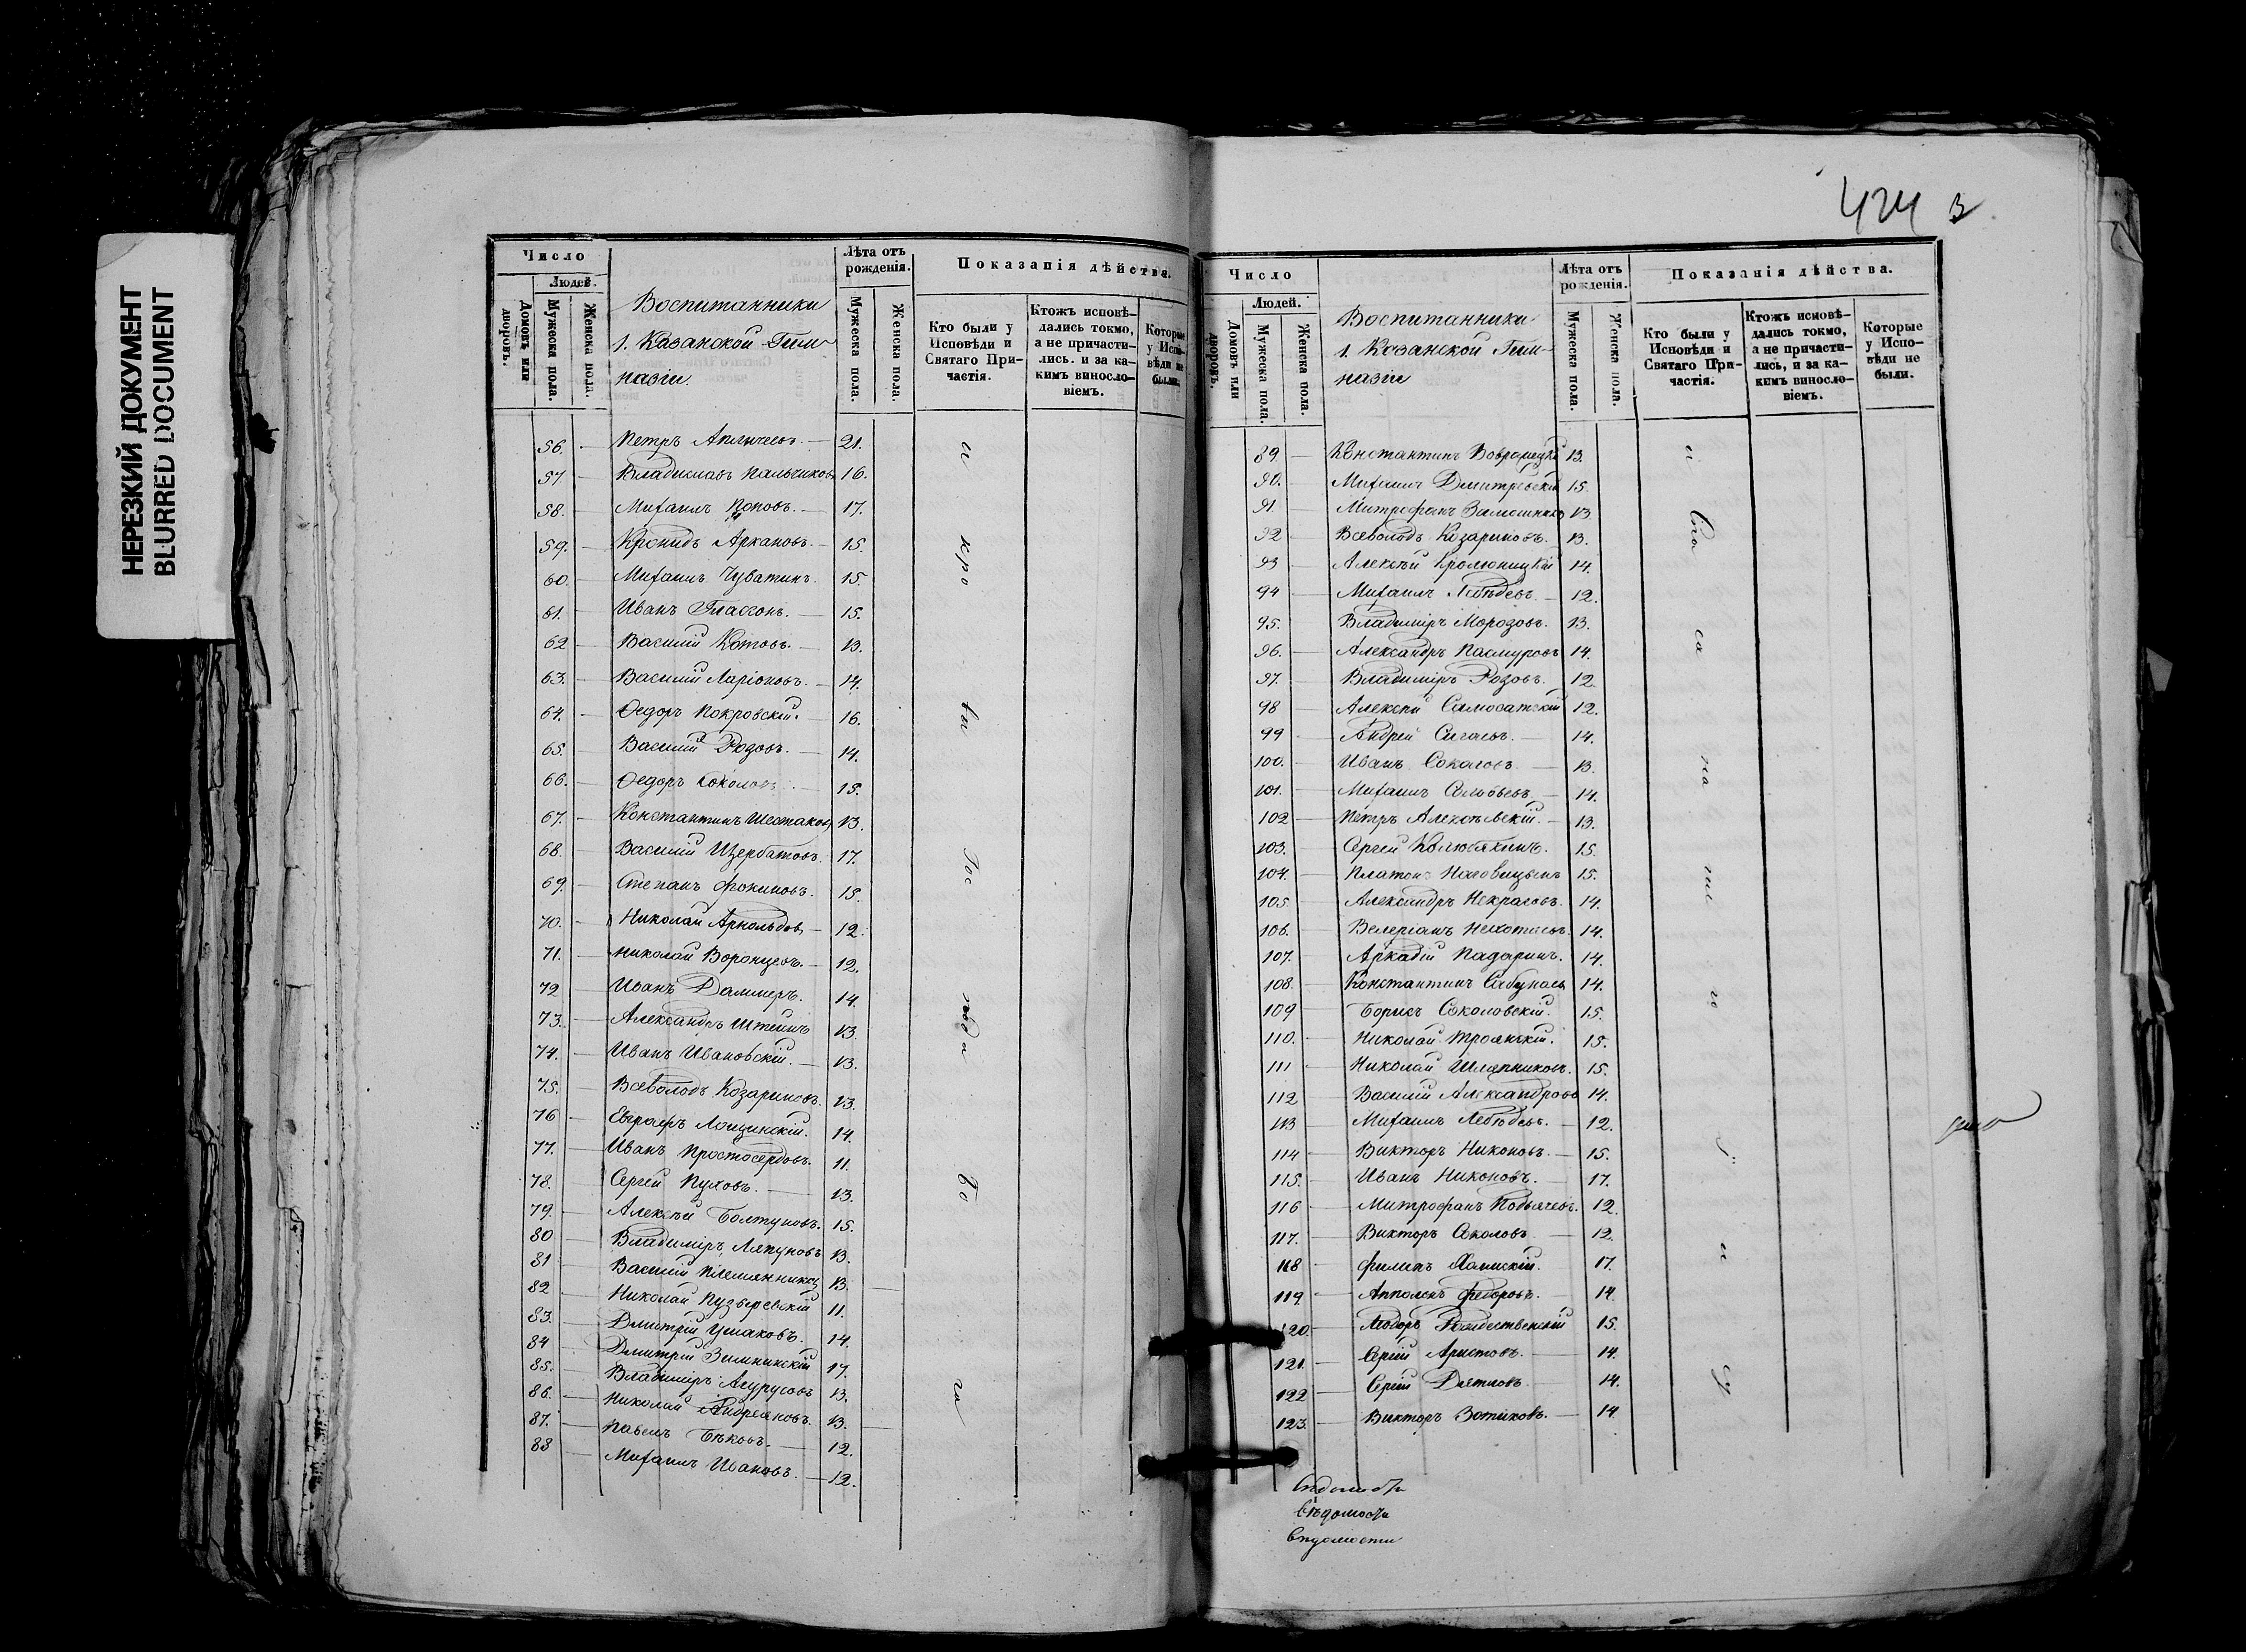 НЕРЕЗКИЙ ДОКУМЕНТ
BLURRED DOCUMENT
Число
Людей.
Домовъ или дворовъ.
Мужеска пола.
Женска пола.
Воспитанники
1. Казанской Гим-
назіи.
Лѣта отъ рожденія.
Мужеска пола.
Женска пола.
Показанія дѣйства.
Кто были у Исповѣди и Святаго При-частія.
Ктожъ исповѣ-дались токмо, а не причасти-лись. и за ка-кимъ винosло-віемъ.
Которые у Испо-вѣди не были.
56. — Петръ — 21.
57. — Владиславъ Пальчиковъ 16.
58. — Михаилъ Поповъ. — 17.
59. — Кронидъ Аркановъ. — 15.
60. — Михаилъ Чуватинъ. 15.
61. — Иванъ Глассонъ. — 15.
62 — Василій Котовъ. — 13.
63. — Василій Ларіоновъ. — 14.
64. — Ѳедоръ Покровскій. — 16.
65. Василій Розовъ. — 14.
66. — Ѳедоръ Соколовъ. — 15.
67. — Константинъ Шестаковъ 13.
68. Василій Щербатовъ. 17.
69. — Степанъ Фокиновъ. 15.
70. — Николай Арнольдовъ — 12.
71. — Николай Воронцовъ. — 12.
72 — Иванъ Даммеръ. 14.
73. — Александръ Штейнъ 13.
74. — Иванъ Ивановскій. — 13.
75. — Всеволодъ Козариновъ. 13.
76 — Евграфъ Лощинскій. 14.
77. — Иванъ Простосердовъ. 11.
78. — Сергей Пуховъ. — 13.
79. — Алексѣй Болтуновъ. 15.
80 — Владиміръ Ляпуновъ 13.
81 — Василій Племянниковъ 13.
82 — Николай Пузыревскій 11.
83. — Дмитрій Ушаковъ. 14.
84 — Дмитрій Зимнинскій 17.
85. — Владиміръ 13.
86. — Николай Андреяновъ. 13.
87. — Павелъ Бѣковъ. — 12.
88 — Михаилъ Ивановъ. — 12.
424
Число
Людей.
Домовъ или дворовъ.
Мужеска пола
Женска пола.
Воспитанники
1. Казанской Гим-
назіи
Лѣта отъ рожденія.
Мужеска пола.
Женска пола.
Показанія дѣйства.
Кто были у Исповѣди и Святаго При-частія.
Ктожъ исповѣ-дались токмо, а не причасти-лись, и за ка-кимъ винosло-віемъ.
Которые у Испо-вѣди не были.
89. — Константинъ 13.
90. — Михаилъ Дмитревскій 15.
91. — Митрофанъ 13
92 — Всеволодъ Козариновъ. 13.
93 — Алексѣй 14.
94 — Михаилъ Лебѣдевъ. — 12.
95. — Владиміръ Морозовъ. 13.
96. — Александръ Пасмуровъ 14.
97. — Владиміръ Розовъ. 12
98 — Алексѣй Самосатскій 12.
99 — Андрей — 14.
100. — Иванъ Соколовъ — 13.
101. — Михаилъ Соловьевъ. — 14.
102 — Петръ Алексѣевскій. — 13.
103. — Сергей Колюбакинъ. 15.
104. — Платонъ Наговицынъ 15.
105 — Александръ Некрасовъ. 14.
106. — Велеріанъ 14.
107. — Аркадій Падаринъ. 14.
108. — Константинъ 14.
109 — Борисъ Соколовскій. 15.
110. — Николай Троянскій. 15.
111 — Николай Шляпниковъ. 15.
112 — Василій Александровъ 14.
113 — Михаилъ Лебѣдевъ. — 12.
114 — Викторъ Никоновъ. — 15.
115. — Иванъ Никоновъ. — 17.
116 — Митрофанъ Подьячевъ. 12
117. — Викторъ Соколовъ — 12.
118 — Филипъ 17.
119. — Апполонъ Федоровъ. 14.
120. — Рождественскій 15.
121. — Сергій Аристовъ. — 14.
122 — Сергій Дятловъ. — 14.
123. — Викторъ Зотиковъ. — 14.
вѣдомости
вѣдомости